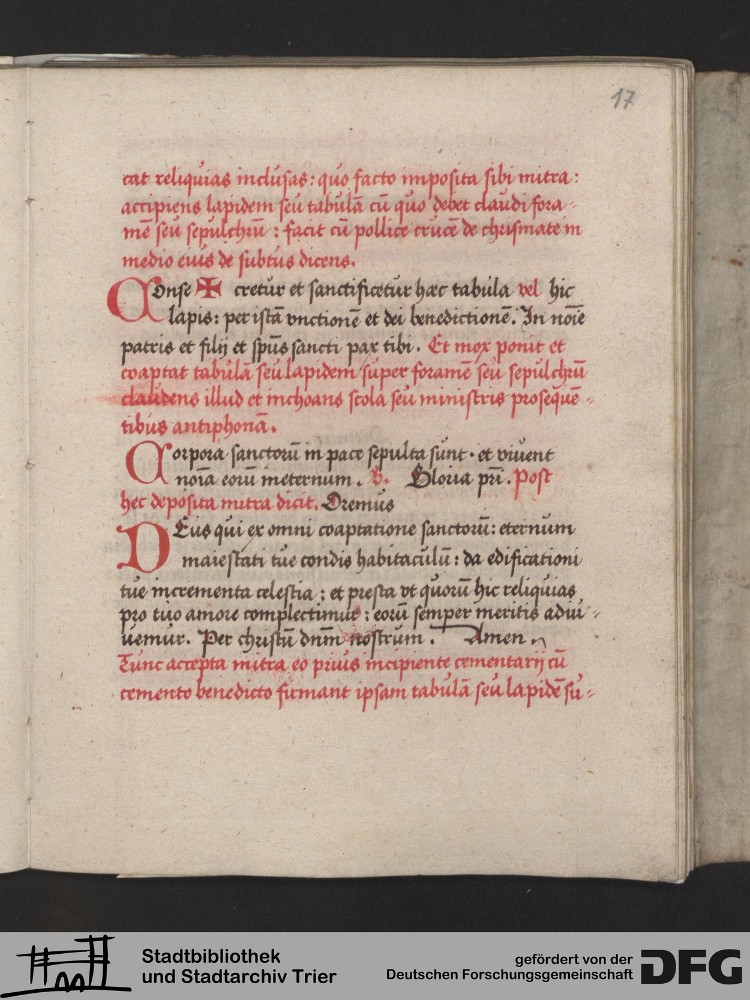 17
cat reliquias inclusas: quo facto imposita sibi mitra:
accipiens lapidem seu tabulā cū quo debet claudi fora-
mē seu sepulchrū: facit cū pollice crucē de chrismate in
medio eius de subtus dicens.
Conse ✠ cretur et sanctificetur haec tabula vel hic
lapis: per istā vnctionē et dei benedictionē. In noīe
patris et filij et spūs sancti pax tibi. Et mox ponit et
coaptat tabulā seu lapidem super foramē seu sepulchrū
claudens illud et inchoans scola seu ministris prosequē-
tibus antiphonā.
Corpora sanctorū in pace sepulta sunt. et viuent
noīa eorū in eternum. V. Gloria prī. Post
hec deposita mitra dicit. Oremus
DEus qui ex omni coaptatione sanctorū: eternum
maiestati tue condis habitaculū: da edificationi
tue incrementa celestia: et presta vt quorū hic reliquias
pro tuo amore complectimur: eorū semper meritis adiu-
uemur. Per christū dnm̄ nostrum. Amen.
Tunc accepta mitra eo prius incipiente cementarij cū
cemento benedicto firmant ipsam tabulā seu lapidē su-
Stadtbibliothek
und Stadtarchiv Trier
gefördert von der
Deutschen Forschungsgemeinschaft
DFG